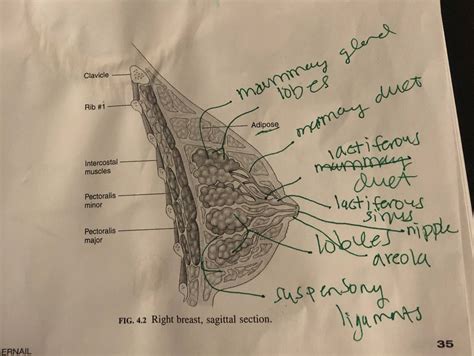 Clavicle
Rib #1
Intercostal
muscles
Pectoralis
minor
Pectoralis
major
Adipose
mammary gland
lobes
mammary duct
lactiferous
mammary
duct
lactiferous
sinus
nipple
lobules
areola
suspensory
ligaments
FIG. 4.2 Right breast, sagittal section.
ERNAIL
35